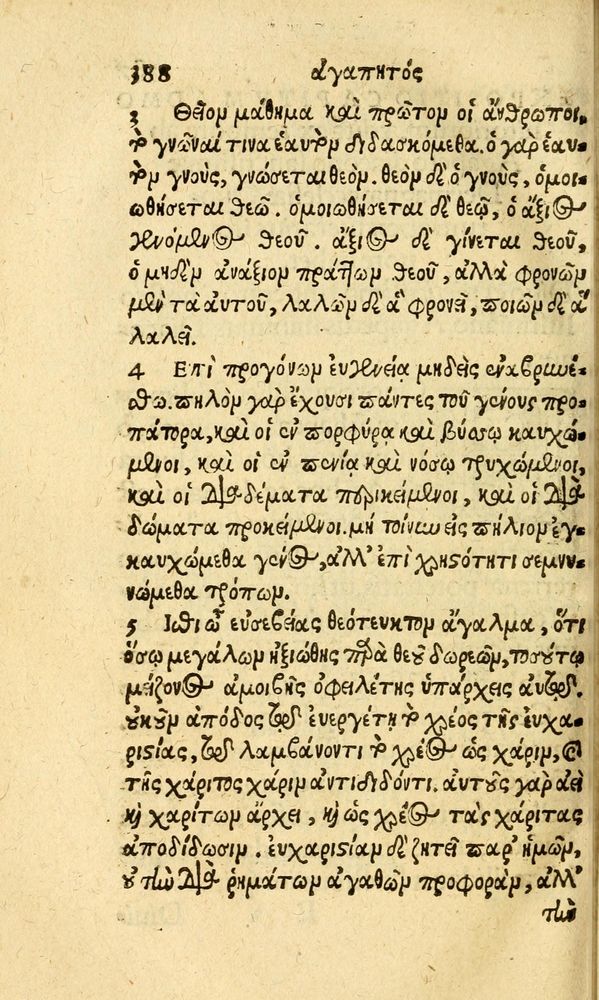 388 ἀγαπητός
3 Θεῖον μάθημα καὶ πρῶτον οἱ ἄνθρωποι,
τὸ γνῶναί τινα ἑαυτὸν διδασκόμεθα. ὁ γὰρ ἑαυ-
τὸν γνοὺς, γνώσεται θεόν. θεὸν δὲ ὁ γνοὺς, ὁμοι-
ωθήσεται θεῷ. ὁμοιωθήσεται δὲ θεῷ, ὁ ἄξιος
γενόμενος θεοῦ. ἄξιος δὲ γίνεται θεοῦ,
ὁ μηδὲν ἀνάξιον πράττων θεοῦ, ἀλλὰ φρονῶν
μὲν τὰ αὐτοῦ, λαλῶν δὲ ἃ φρονεῖ, ποιῶν δὲ ἃ
λαλεῖ.
4 Επὶ προγόνων εὐγενείᾳ μηδεὶς ἐναβρυνέ-
σθω. πηλὸν γὰρ ἔχουσι πάντες τοῦ γένους προ-
πάτορα, καὶ οἱ ἐν πορφύρᾳ καὶ βύσσῳ καυχώ-
μενοι, καὶ οἱ ἐν πενίᾳ καὶ νόσῳ τρυχώμενοι,
καὶ οἱ διαδέματα περικείμενοι, καὶ οἱ δια
δώματα προκείμενοι. μὴ τοίνυν εἰς πήλιον ἐγ-
καυχώμεθα γένος, ἀλλ' ἐπὶ χρηστότητι σεμνυ-
νώμεθα τρόπων.
5 Ιθι ὦ εὐσεβείας θεότευκτον ἄγαλμα, ὅτι
ὅσῳ μεγάλων ἠξιώθης παρὰ θεοῦ δωρεῶν, τοσούτῳ
μείζονος ἀμοιβῆς ὀφειλέτης ὑπάρχεις αὐτῷ.
οὐκοῦν ἀπόδος τῷ εὐεργέτῃ τὸ χρέος τῆς εὐχα-
ριστίας, τῷ λαμβάνοντι τὸ χρέος ὡς χάριν, καὶ
τῆς χάριτος χάριν ἀντιδιδόντι. αὐτὸς γὰρ ἀεὶ
καὶ χαρίτων ἄρχει, καὶ ὡς χρέος τὰς χάριτας
ἀποδίδωσιν. εὐχαριστίαν δὲ ζητεῖ παρ' ἡμῶν,
οὐ τὴν διὰ ῥημάτων ἀγαθῶν προφοράν, ἀλλ'
τὴν